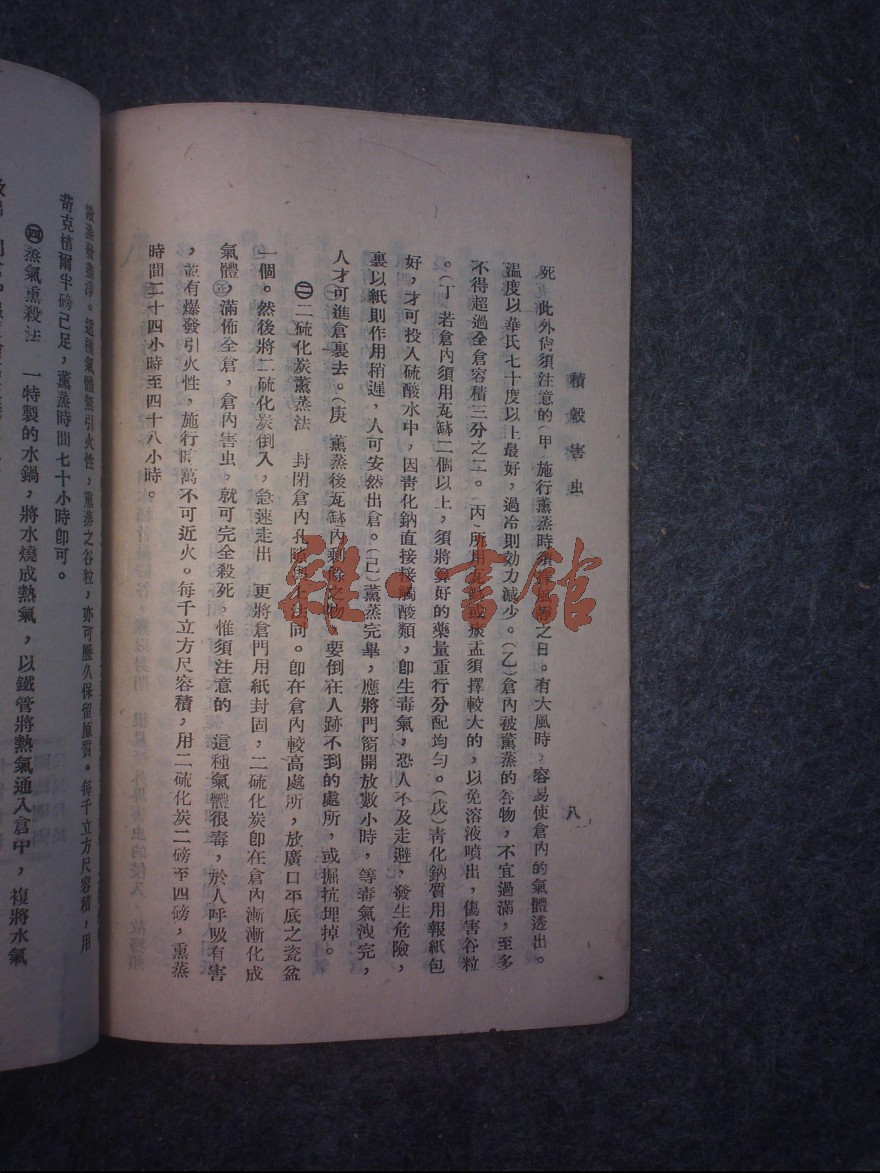 積穀害虫
八
死。此外尚須注意的(甲)施行薰蒸時須擇風靜之日。有大風時,容易使倉內的氣體透出。
溫度以華氏七十度以上最好,過冷則効力減少。(乙)倉內被薰蒸的谷物,不宜過滿,至多
不得超過全倉容積三分之二。(丙)所用瓦缽或痰盂須擇較大的,以免溶液噴出,傷害谷粒
。(丁)若倉內須用瓦缽二個以上,須將算好的藥量重行分配均勻。(戊)靑化鈉質用報紙包
好,才可投入硫酸水中,因靑化鈉直接接觸酸類,卽生毒氣,恐人不及走避,發生危險,
裏以紙則作用稍遲,人可安然出倉。(己)薰蒸完畢,應將門窗開放數小時,等毒氣洩完,
人才可進倉裏去。(庚)薰蒸後瓦缽內剩餘之物,要倒在人跡不到的處所,或掘抗埋掉。
㊁二硫化炭薰蒸法 封閉倉內孔隙與上法同。卽在倉內較高處所,放廣口平底之瓷盆
一個。然後將二硫化炭倒入,急速走出 更將倉門用紙封固,二硫化炭卽在倉內漸漸化成
氣體,滿佈全倉,倉內害虫,就可完全殺死,惟須注意的 這種氣體很毒,於人呼吸有害
,並有爆發引火性,施行時萬不可近火。每千立方尺容積,用二硫化炭二磅至四磅,薰蒸
時間二十四小時至四十八小時。
發盡淨。這種氣體無引火性,薰蒸之谷粒,亦可歷久保留原質。每千立方尺容積,用
苛克植爾半磅已足,薰蒸時間七十小時卽可。
㊃蒸氣熏殺法 一特製的水鍋,將水燒成熱氣,以鐵管將熱氣通入倉中,複將水氣
雜·書館